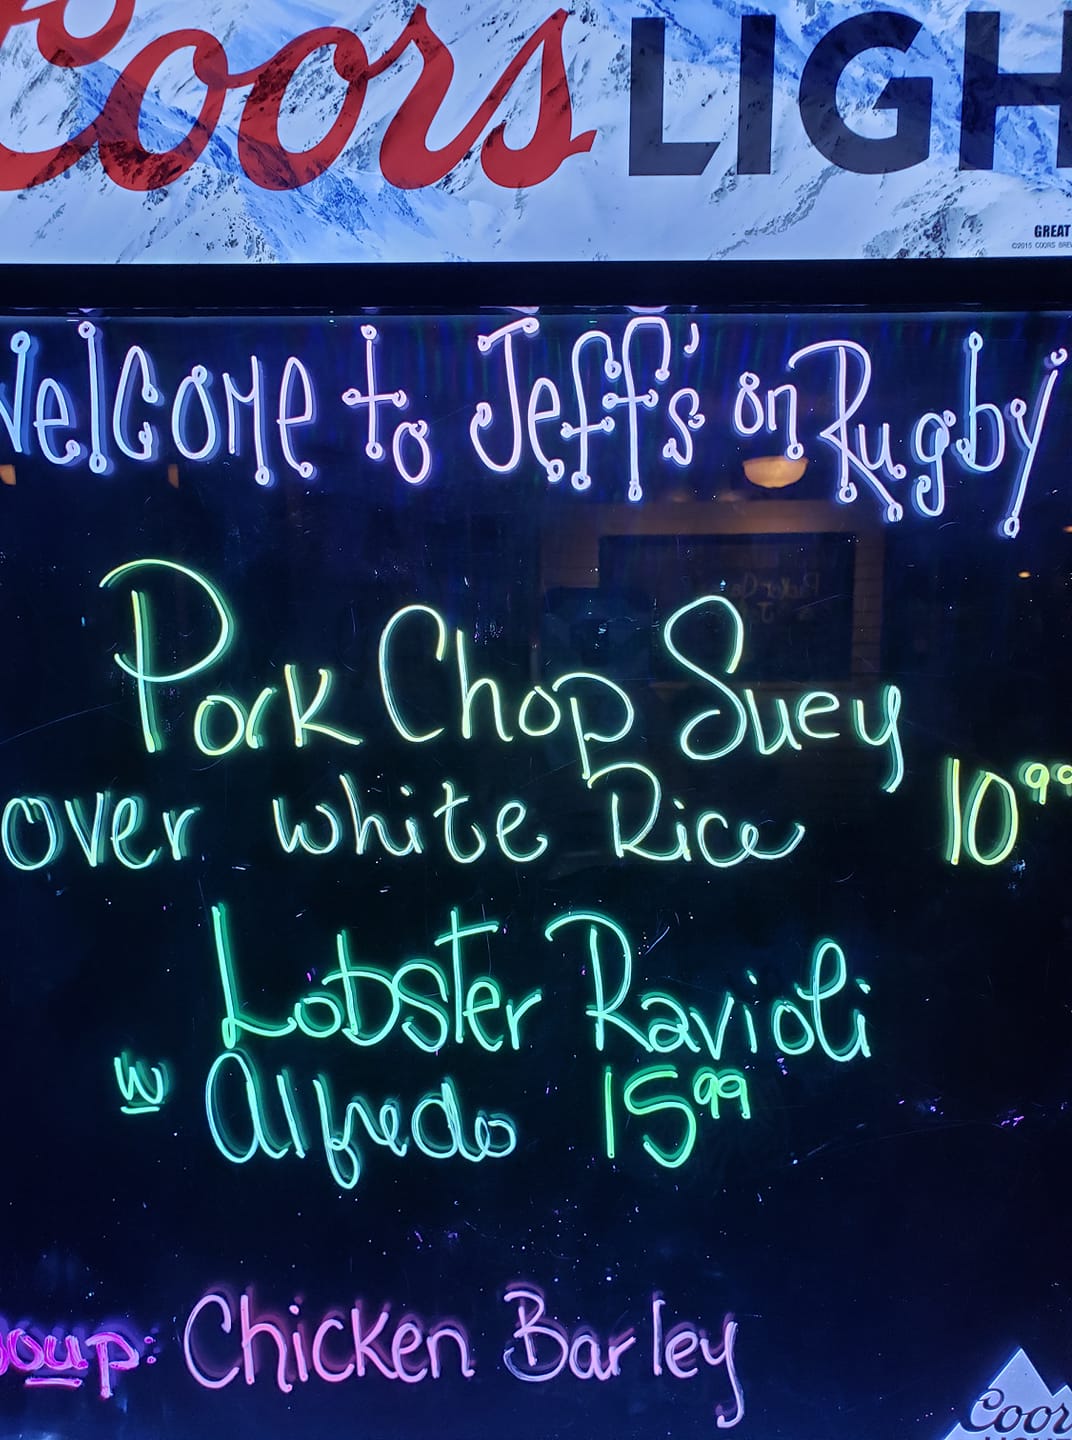 Coors LIGH
GREAT
©2015 COORS BREW
Welcome to Jeff's on Rugby
Pork Chop Suey
over white Rice 10.99
Lobster Ravioli
w Alfredo 15.99
Soup: Chicken Barley
Coor
LIGHT